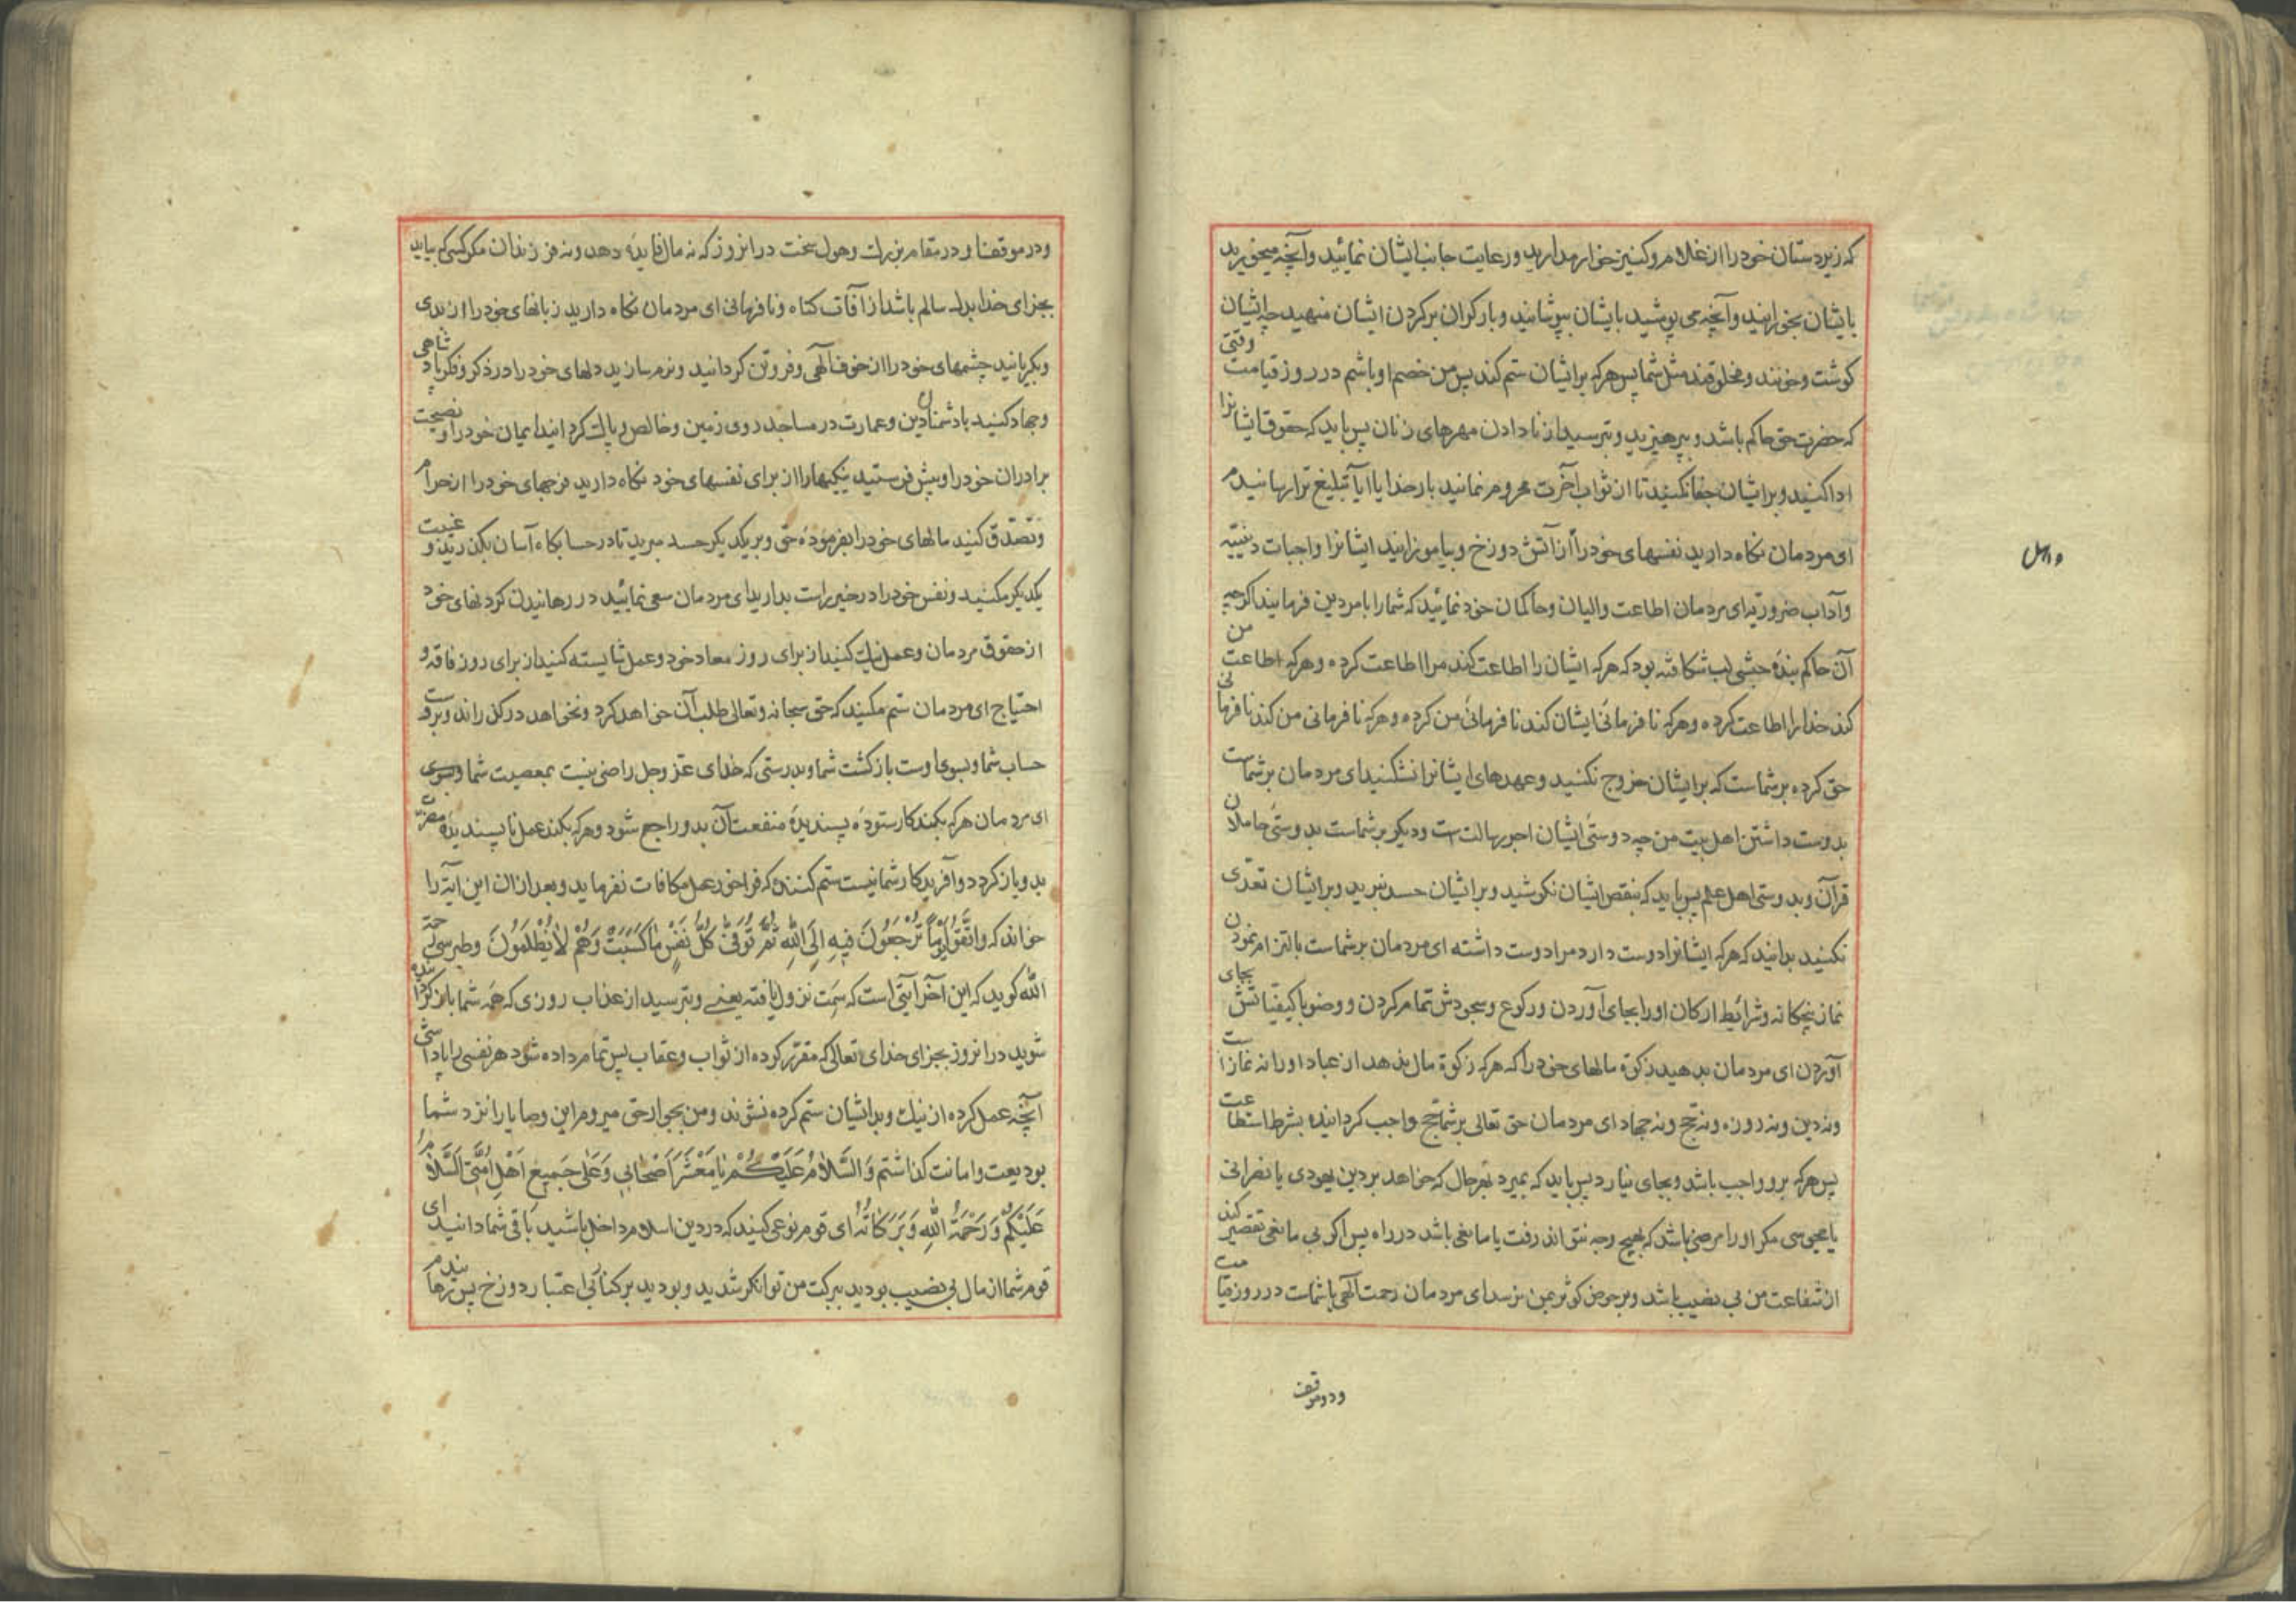 که زیردستان خود را از غلام و کنیز خوار مدارید و رعایت جانب ایشان نمائید و آنچه میخورید
بایشان بخورانید و آنچه می پوشید بایشان بپوشانید و بار کران بر کردن ایشان منهید چه ایشان
کوشت و خونند و مخلوقند مثل شما پس هر که بر ایشان ستم کند پس من خصم او باشم در روز قیامت وقتی
که حضرت حق حاکم باشد و بپرهیزید و بترسید از نادادن مهرهای زنان پس باید که حقوق ایشانرا
ادا کنید و بر ایشان جفا نکنید تا از ثواب آخرت محروم نمانید بار خدایا آیا تبلیغ ترا رسانیدم
ای مردمان نکاه دارید نفسهای خود را از آتش دوزخ و بیاموزانید ایشانرا واجبات دینیّه
و آداب ضروریّه ای مردمان اطاعت والیان و حاکمان خود نمائید که شما را بامر دین فرمایند اکرچه
آن حاکم بندۀ حبشی لب شکافته بود که هر که ایشان را اطاعت کند مرا اطاعت کرده و هر که اطاعت من
کند خدا را اطاعت کرده و هر که نافرمانی ایشان کند نافرمانی من کرده و هر که نافرمانی من کند نافرمانی
حق کرده بر شماست که بر ایشان خروج نکنید و عهدهای ایشانرا نشکنید ای مردمان بر شماست
بدوست داشتن اهل بیت من چه دوستی ایشان اجر رسالت است و دیکر بر شماست بدوستی حاملان
قرآن و بدوستی اهل علم پس باید که بنقص ایشان نکوشید و بر ایشان حسد نبرید و بر ایشان تعدّی
نکنید بدانید که هر که ایشانرا دوست دارد مرا دوست داشته ای مردمان بر شماست بالتزام نمودن
نماز پنجکانه و شرائط ارکان او را بجای آوردن و رکوع و سجودش تمام کردن و وضو با کیفیّاتش بجای
آوردن ای مردمان بدهید زکوة مالهای خود را که هر که زکوة مال ندهد از عباد او را نه نماز است
و نه دین و نه روزه و نه حج و نه جهاد ای مردمان حق تعالی بر شما حج واجب کردانیده بشرط استطاعت
پس هر که برو واجب باشد و بجای نیارد پس باید که بمیرد بهر حال که خواهد بر دین یهودی یا نصرانی
یا مجوسی مکر او را مرضی باشد که بهیچ وجه نتواند رفت یا مانعی باشد در راه پس اکر بی مانعی تقصیر کند
از شفاعت من بی نصیب باشد و بر حوض کوثر بمن نرسد ای مردمان رحمت آلهی با شماست در روز قیامت
و در موقف
و در موقفنا و در مقام بزرك و هول سخت در انروز که نه مال فایده دهد و نه فرزندان مکر کسی که بیاید
بجزای خدا بدل سالم باشد از آفات کناه و نافرمانی ای مردمان نکاه دارید زبانهای خود را از بدی
و بکریانید چشمهای خود را از خوف آلهی و فروتن کردانید و نرم سازید دلهای خود را در ذکر و فکر پادشاهی
و جهاد کنید با دشمنان دین و عمارت در مساجد روی زمین و خالص و پاك کردانید ایمان خود را و نصیحت
برادران خود را و پیش فرستید نیکیها را از برای نفسهای خود نکاه دارید فرجهای خود را از حرام
و تصدّق کنید مالهای خود را بفرمودۀ حق و بر یکدیکر حسد مبرید تا در حسابکاه آسان بکذرید و غیبت
یکدیکر مکنید و نفس خود را در خیر راست بدارید ای مردمان سعی نمائید در رهانیدن کردنهای خود
از حقوق مردمان و عمل نیك کنید از برای روز معاد خود و عمل شایسته کنید از برای روز فاقه و
احتیاج ای مردمان ستم مکنید که حق سبحانه و تعالی طلب آن خواهد کرد و نخواهد در کذراند و بروست
حساب شما و بسوی اوست بازکشت شما و بدرستی که خدای عز و جل راضی نیست بمعصیت شما
ای مردمان هر که بکند کار ستودۀ پسندیدۀ منفعت آن بدو راجع شود و هر که بکند عمل ناپسندیدۀ مضرّت
بدو باز کردد و آفریدکار شما نیست ستم کننده که فراخور عمل مکافات نفرماید و بعد از ان این آیة را
خواند که وَاتَّقُوا یَوْماً تُرْجَعُونَ فِیهِ اِلَی اللّٰهِ ثُمَّ تُوَفّٰی کُلُّ نَفْسٍ مَاکَسَبَتْ وَهُمْ لاٰیُظْلَمُونَ و طبرسی رحمة
اللّه کوید که این آخر آیتی است که سمت نزول یافته یعنے و بترسید از عذاب روزی که همه شما باز کردانیده
شوید در انروز بجزای خدای تعالی که مقرّر کرده از ثواب و عقاب پس تمام داده شود هر نفسی را پاداشی
آنچه عمل کرده از نیك و بد و ایشان ستم کرده نشوند و من بجوار حق میروم این وصایا را نزد شما
بودیعت و امانت کذاشتم وَالسَّلاٰمُ عَلَیْکُمْ یٰا مَعْشَرَ اَصْحٰابِی وَعَلٰی جَمِیعِ اَهْلِ اُمَّتِی اَلسَّلاٰمُ
عَلَیْکُمْ وَرَحْمَةُ اللّٰهِ وَبَرَکٰاتُهُ ای قوم نوعی کنید که در دین اسلام داخل باشید باقی شما دانید ای
قوم شما از مال بی نصیب بودید ببرکت من توانکر شدید و بودید بر کنار دوزخ پس